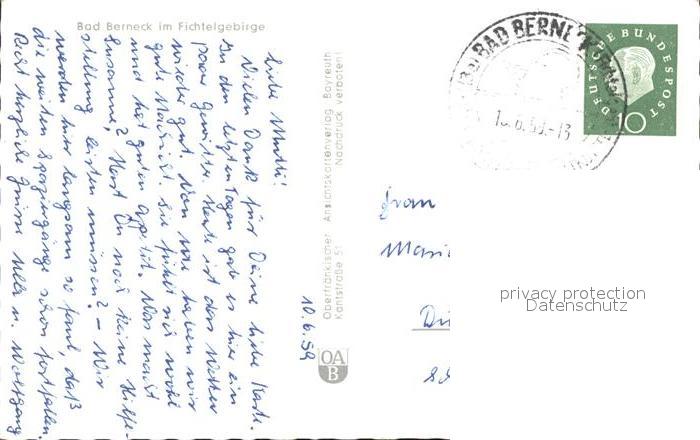 Bad Berneck im Fichtelgebirge
10.6.59
Liebe Mutti!
Vielen Dank für Deine liebe Karte.
In den letzten Tagen gab es hier ein
paar Gewitter. Heute ist das Wetter
wieder gut. Von haben wir
gute Nachricht. Sie fühlt sich wohl
und hat guten Appetit. Was macht
Susanne? Hast Du noch keine Hilfe-
stellung leisten müssen? - Wir
werden hier langsam so faul, daß
die weiten Spaziergänge schon fortfallen.
Recht herzliche Grüsse Wolfgang
Oberfränkischer Ansichtskartenverlag Bayreuth
Kantstraße 51 Nachdruck verboten!
OA
B
BAD BERNECK
10.6.59.-13
DEUTSCHE BUNDESPOST
10
Frau
privacy protection
Datenschutz